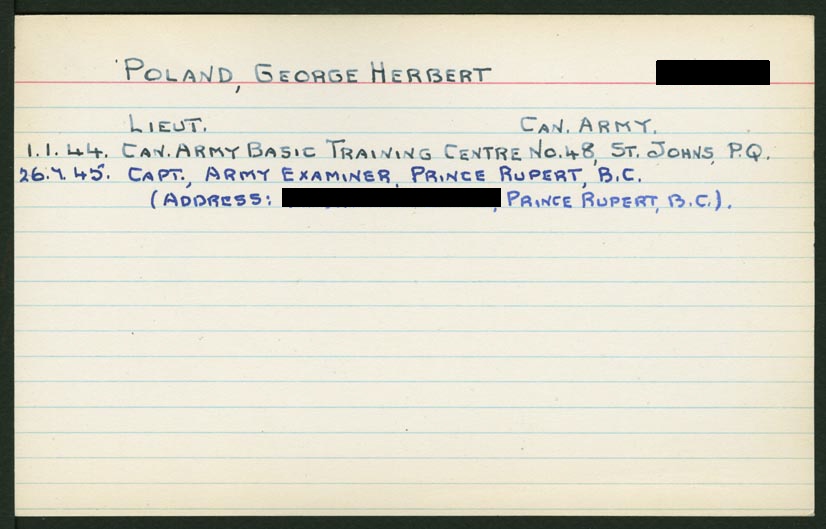 POLAND, GEORGE HERBERT
LIEUT. CAN. ARMY.
1.1.44. CAN. ARMY BASIC TRAINING CENTRE NO.48, ST. JOHNS, P.Q.
26.7.45. CAPT., ARMY EXAMINER, PRINCE RUPERT, B.C.
(ADDRESS: , PRINCE RUPERT, B.C.).